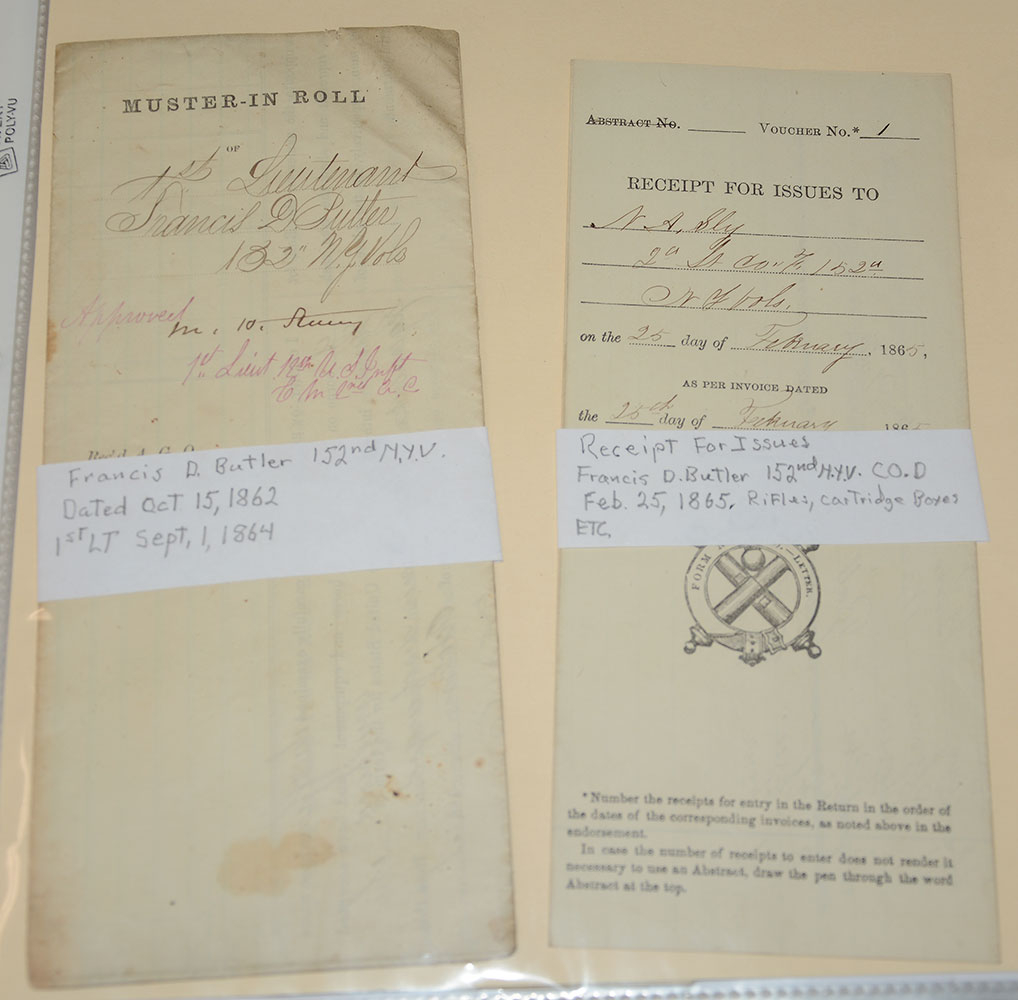 POLY-VU
MUSTER-IN ROLL
OF
1st Lieutenant
Francis D. Butler
152" N.Y Vols
Approved
1st Lieut 12th U.S. Inft
Francis D. Butler 152nd N.Y.V.
Dated Oct 15, 1862
1st LT Sept, 1, 1864
Abstract No. Voucher No.* 1
RECEIPT FOR ISSUES TO
N. A. Sly
2d Lt Co. F. 152d
N Y Vols.
on the 25 day of February, 1865,
AS PER INVOICE DATED
the 25th day of February 1865
Receipt For Issues
Francis D. Butler 152nd N.Y.V. CO.D
Feb. 25, 1865. Rifles, cartridge Boxes
ETC.
FORM —LETTER.
*Number the receipts for entry in the Return in the order of
the dates of the corresponding invoices, as noted above in the
endorsement.
In case the number of receipts to enter does not render it
necessary to use an Abstract, draw the pen through the word
Abstract at the top.